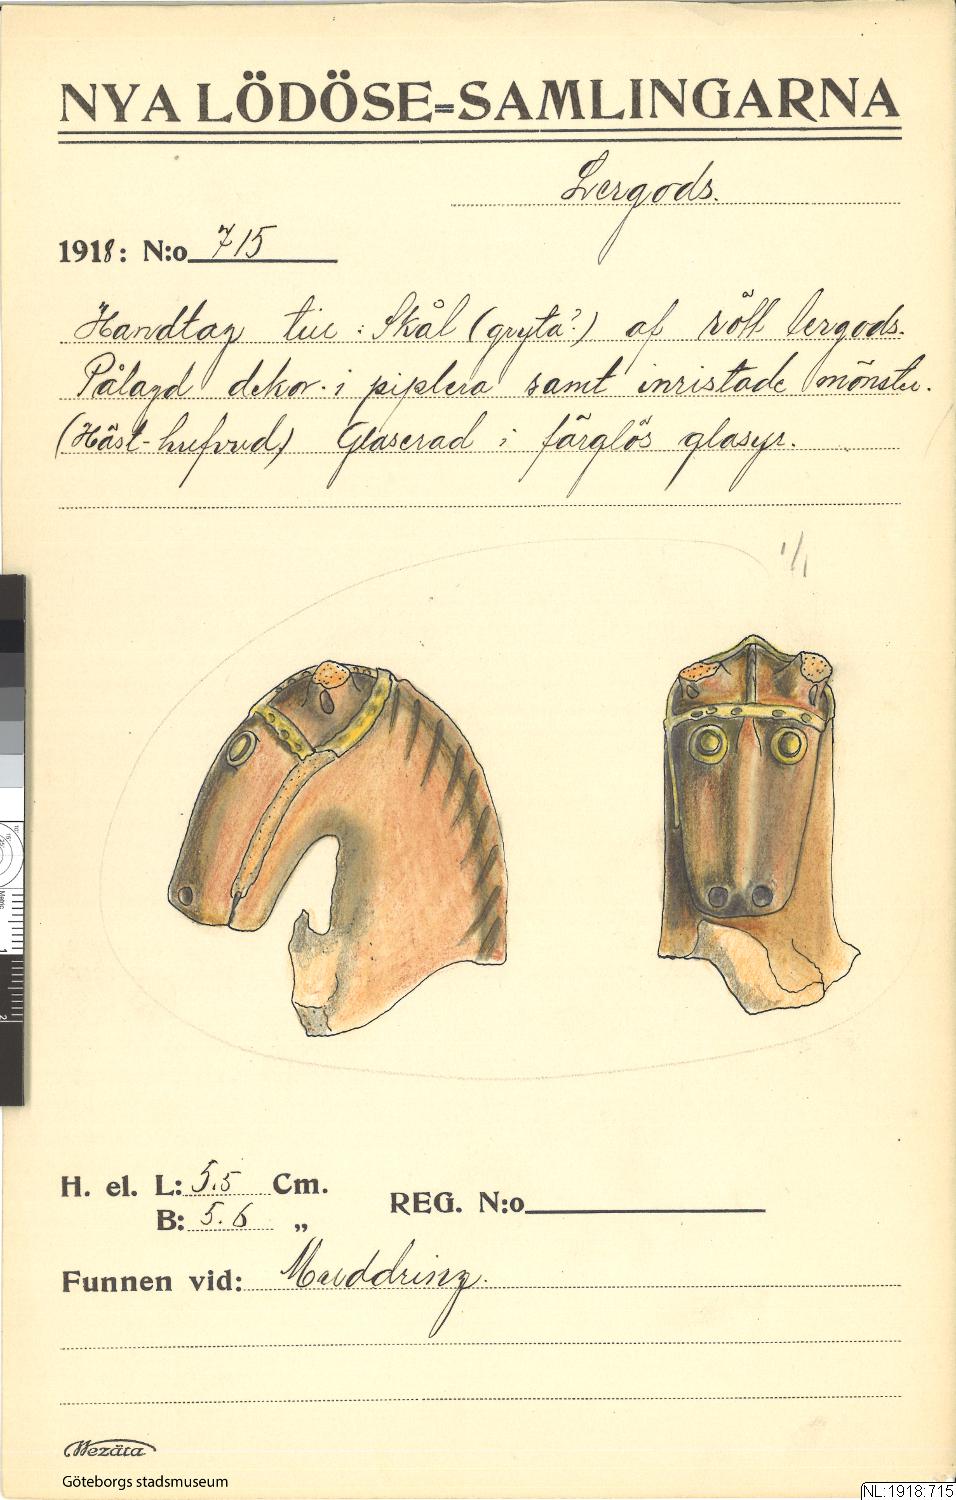 NYA LÖDÖSE=SAMLINGARNA
Lergods.
1918: N:o 715
Handtag till: Skål (gryta?) af rött lergods.
Pålagd dekor i piplera samt inristade mönster.
(Häst-hufvud) Glaserad i färglös glasyr.
1/1
H. el. L: 5.5 Cm.
B: 5.6 „
REG. N:o
Funnen vid: Muddring.
Wezäta
Göteborgs stadsmuseum
NL:1918:715